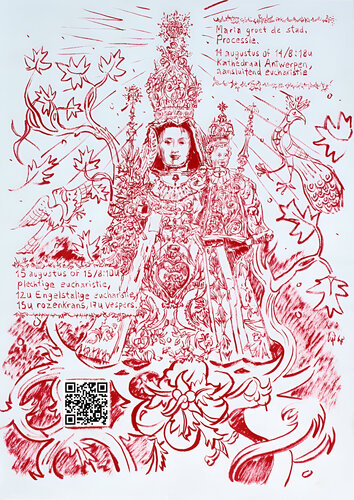 Maria groet de stad.
Processie.
14 augustus of 14/8:18u
Kathedraal Antwerpen,
aansluitend eucharistie
15 augustus or 15/8:10u
plechtige eucharistie,
12u Engelstalige eucharistie,
15u rozenkrans, 17u vespers.